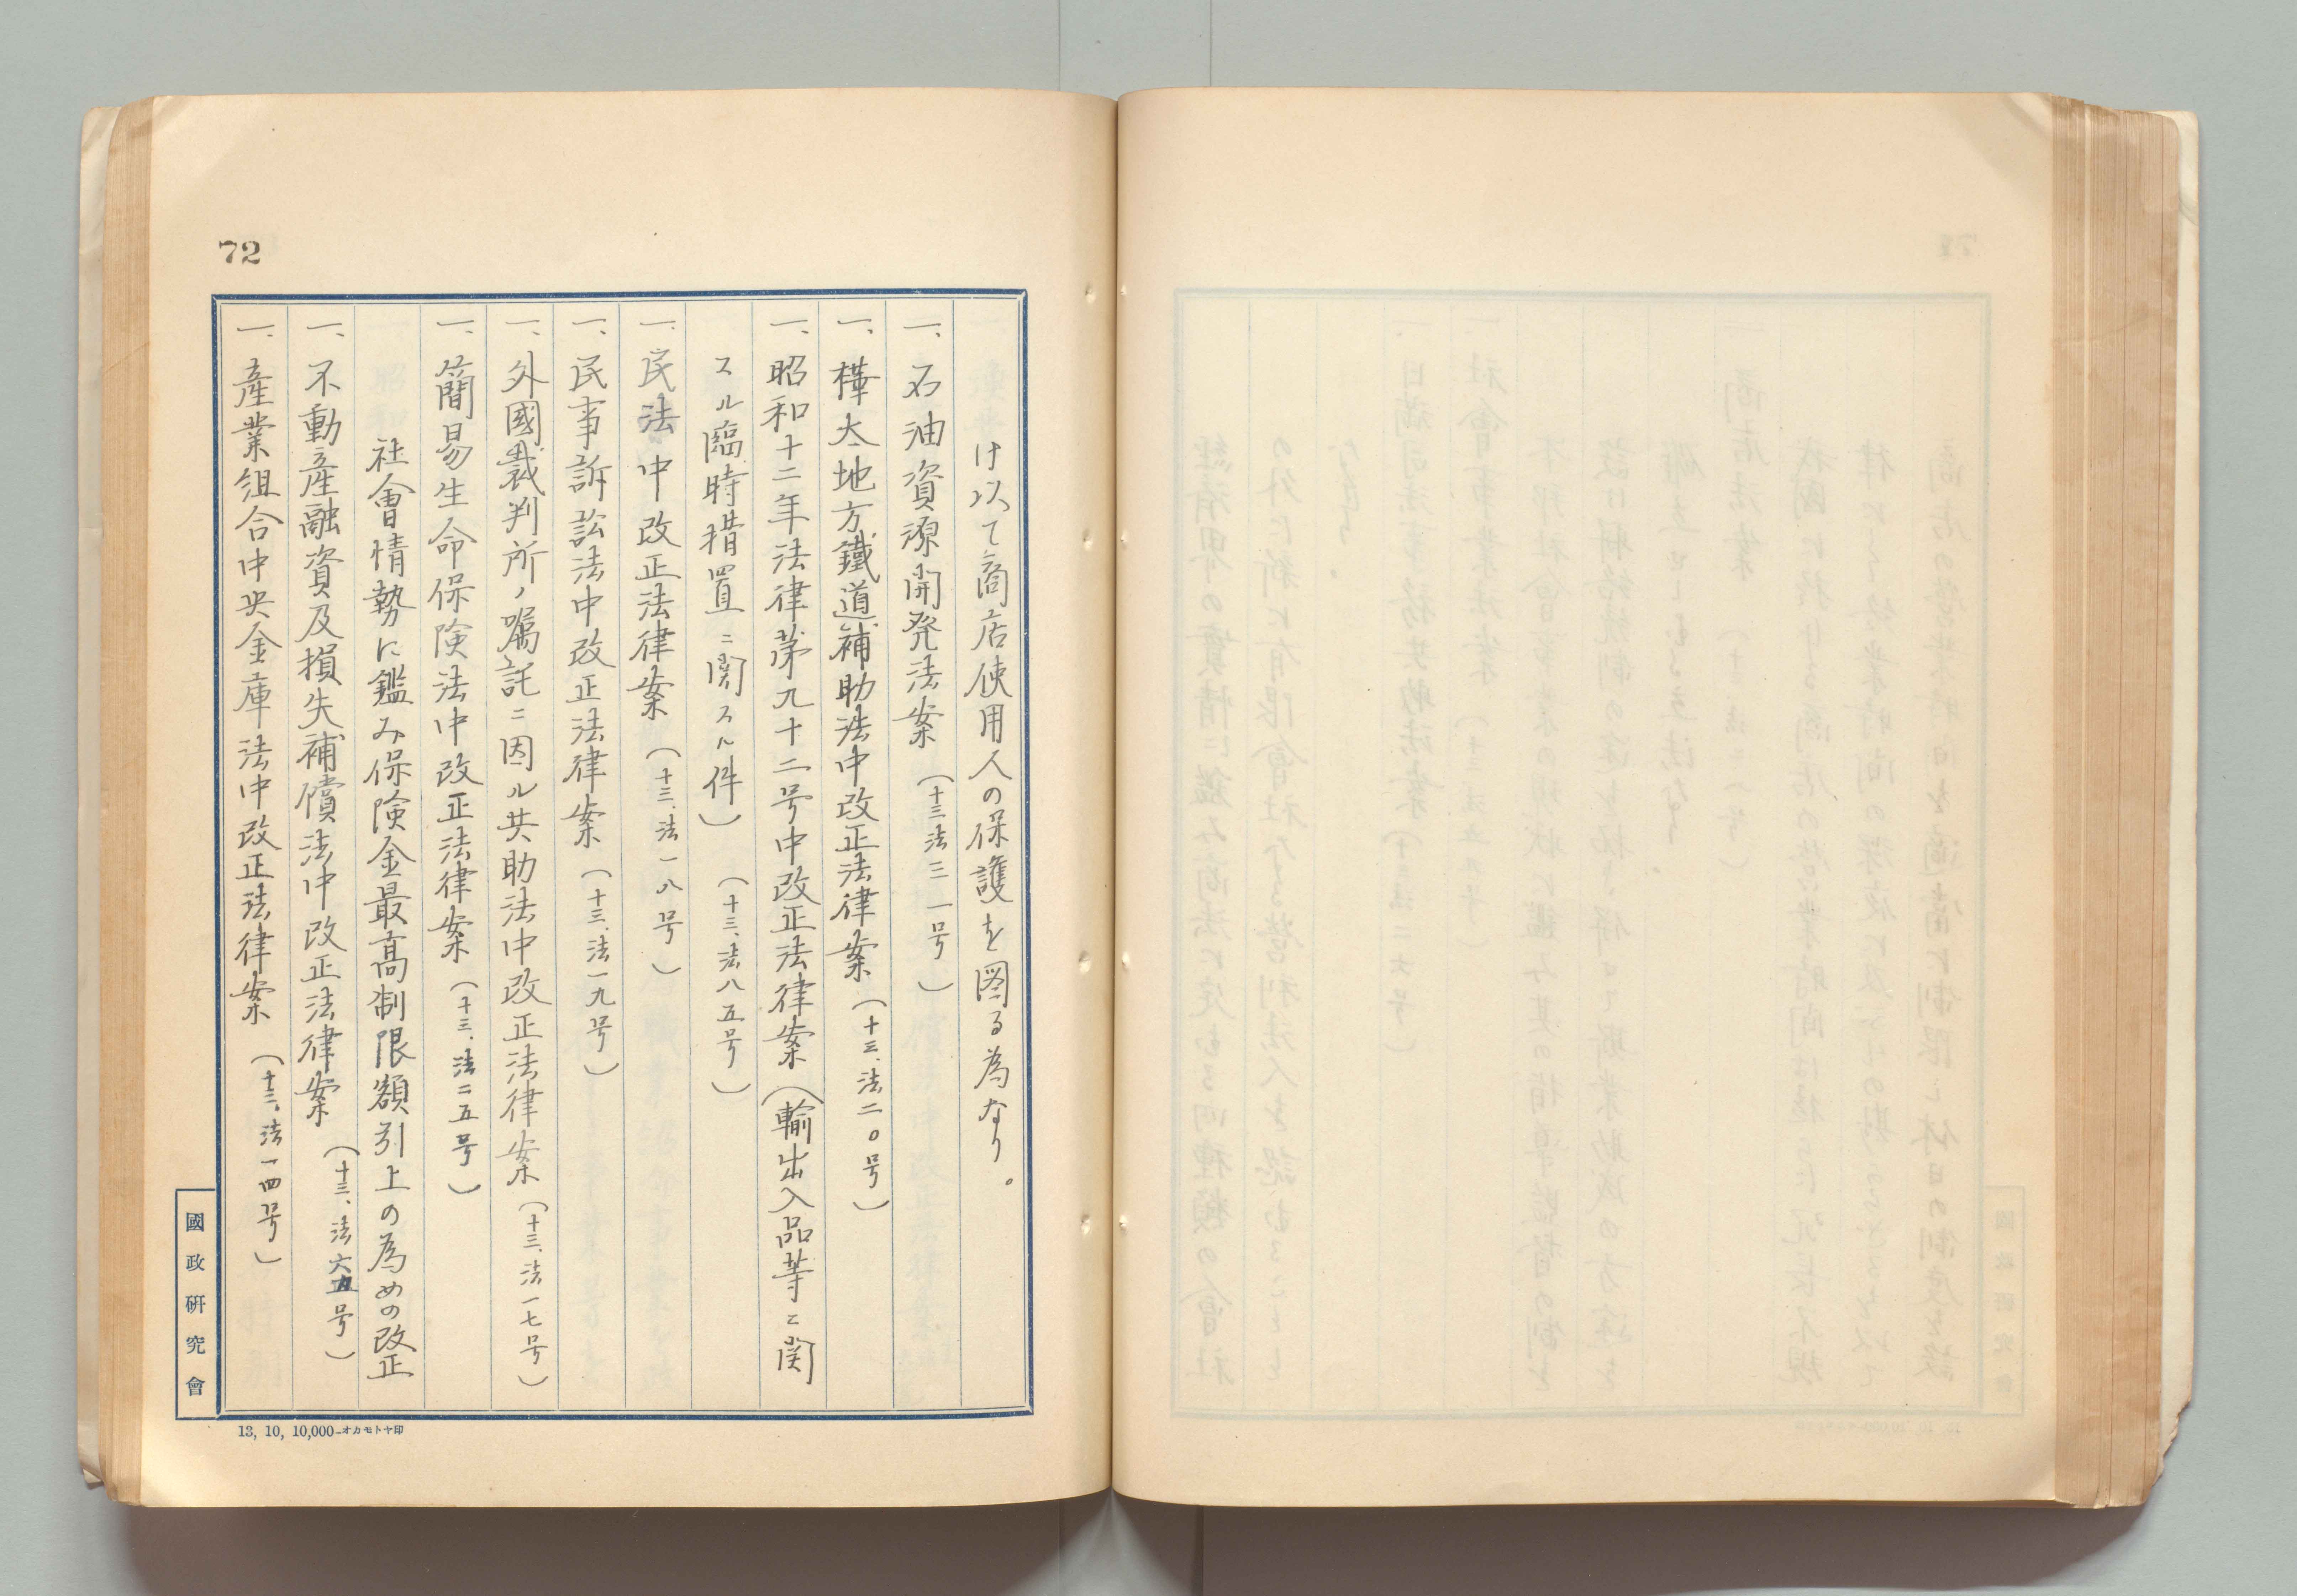 72
け以て商店使用人の保護を図る為なり。
一、石油資源開発法案（十三法三一号）
一、樺太地方鐵道補助法中改正法律案（十三、法二〇号）
一、昭和十二年法律苐九十二号中改正法律案（輸出入品等ニ関
スル臨時措置ニ関スル件）（十三、法八五号）
一、民法中改正法律案（十三、法一八号）
一、民事訴訟法中改正法律案（十三、法一九号）
一、外國裁判所ノ嘱託ニ因ル共助法中改正法律案（十三、法一七号）
一、簡易生命保険法中改正法律案（十三、法二五号）
社會情勢に鑑み保険金最高制限額引上の為めの改正
一、不動産融資及損失補償法中改正法律案（十三、法六五号）
一、産業組合中央金庫法中改正法律案（十三、法一四号）
國政研究會
13, 10, 10,000-オカモトヤ印